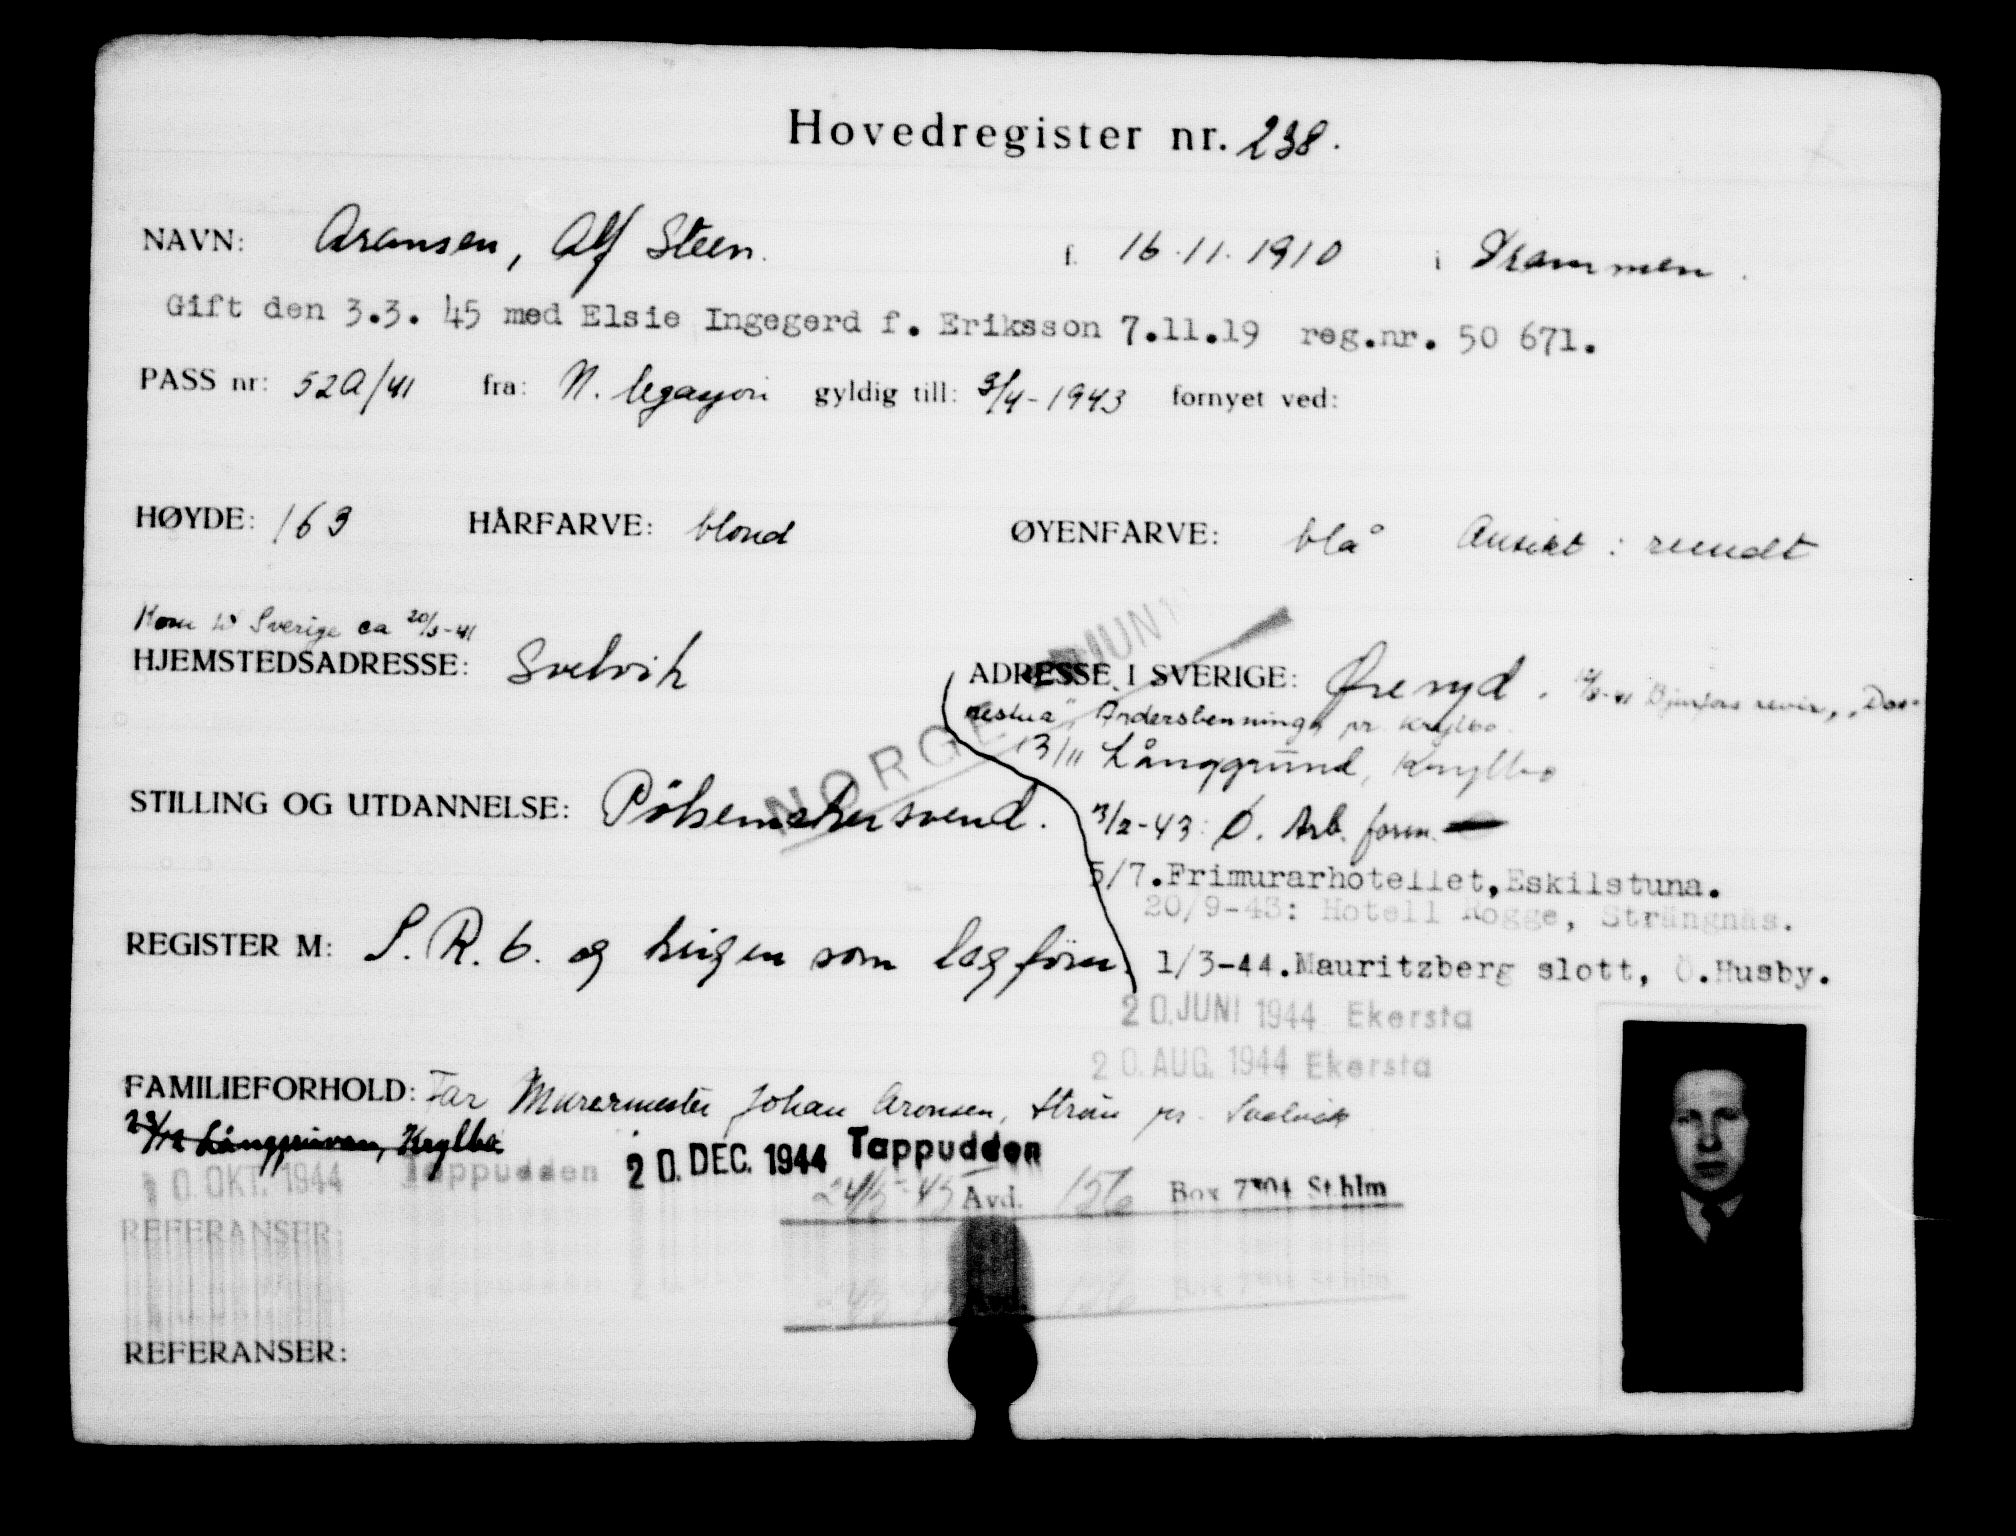 Hovedregister nr. 238.
NAVN: Aronsen, Alf Steen. f. 16.11.1910 i Drammen.
Gift den 3.3. 45 med Elsie Ingegerd f. Eriksson 7.11.19 reg.nr. 50 671.
PASS nr: 52A/41 fra: N. legasjon gyldig till: 3/4-1943 fornyet ved:
HØYDE: 163 HÅRFARVE: blond ØYENFARVE: blå Ansikt: rundt
Kom til Sverige ca 20/3-41
HJEMSTEDSADRESSE: Svelvik ADRESSE I SVERIGE: Øreryd.
Andersbenning, pr. Krylbo.
13/11 Långgruvan, Krylbo
NORGE JUNI
STILLING OG UTDANNELSE: Pölsemakersvend. 3/2-43: Ö. Arb. form.
5/7.Frimurarhotellet,Eskilstuna.
20/9-43: Hotell Rogge, Strängnäs.
REGISTER M: S. R. 6. og krigen som lagförer. 1/3-44.Mauritzberg slott, Ö.Husby.
20. JUNI 1944 Ekersta
20. AUG. 1944 Ekersta
FAMILIEFORHOLD: Far Murermester Johan Aronsen, Strøm pr. Svelvik
Långgruvan, Krylbo.
10. OKT. 1944 Tappudden 20. DEC. 1944 Tappudden
24/5-45 Avd. 156 Box 7304 Sthlm
REFERANSER:
REFERANSER: